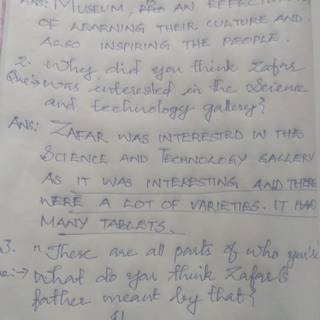 Ans: Museum, an effect
of learning their culture and
also inspiring the people.
2. Why did you think Zafar
Que:→ was interested in the Science
and technology gallery?
Ans: Zafar was interested in the
Science and Technology gallery
as it was interesting and there
were a lot of varieties. It has
many tablets.
3. "These are all parts of who you're
e:→ what do you think Zafar's
father meant by that?